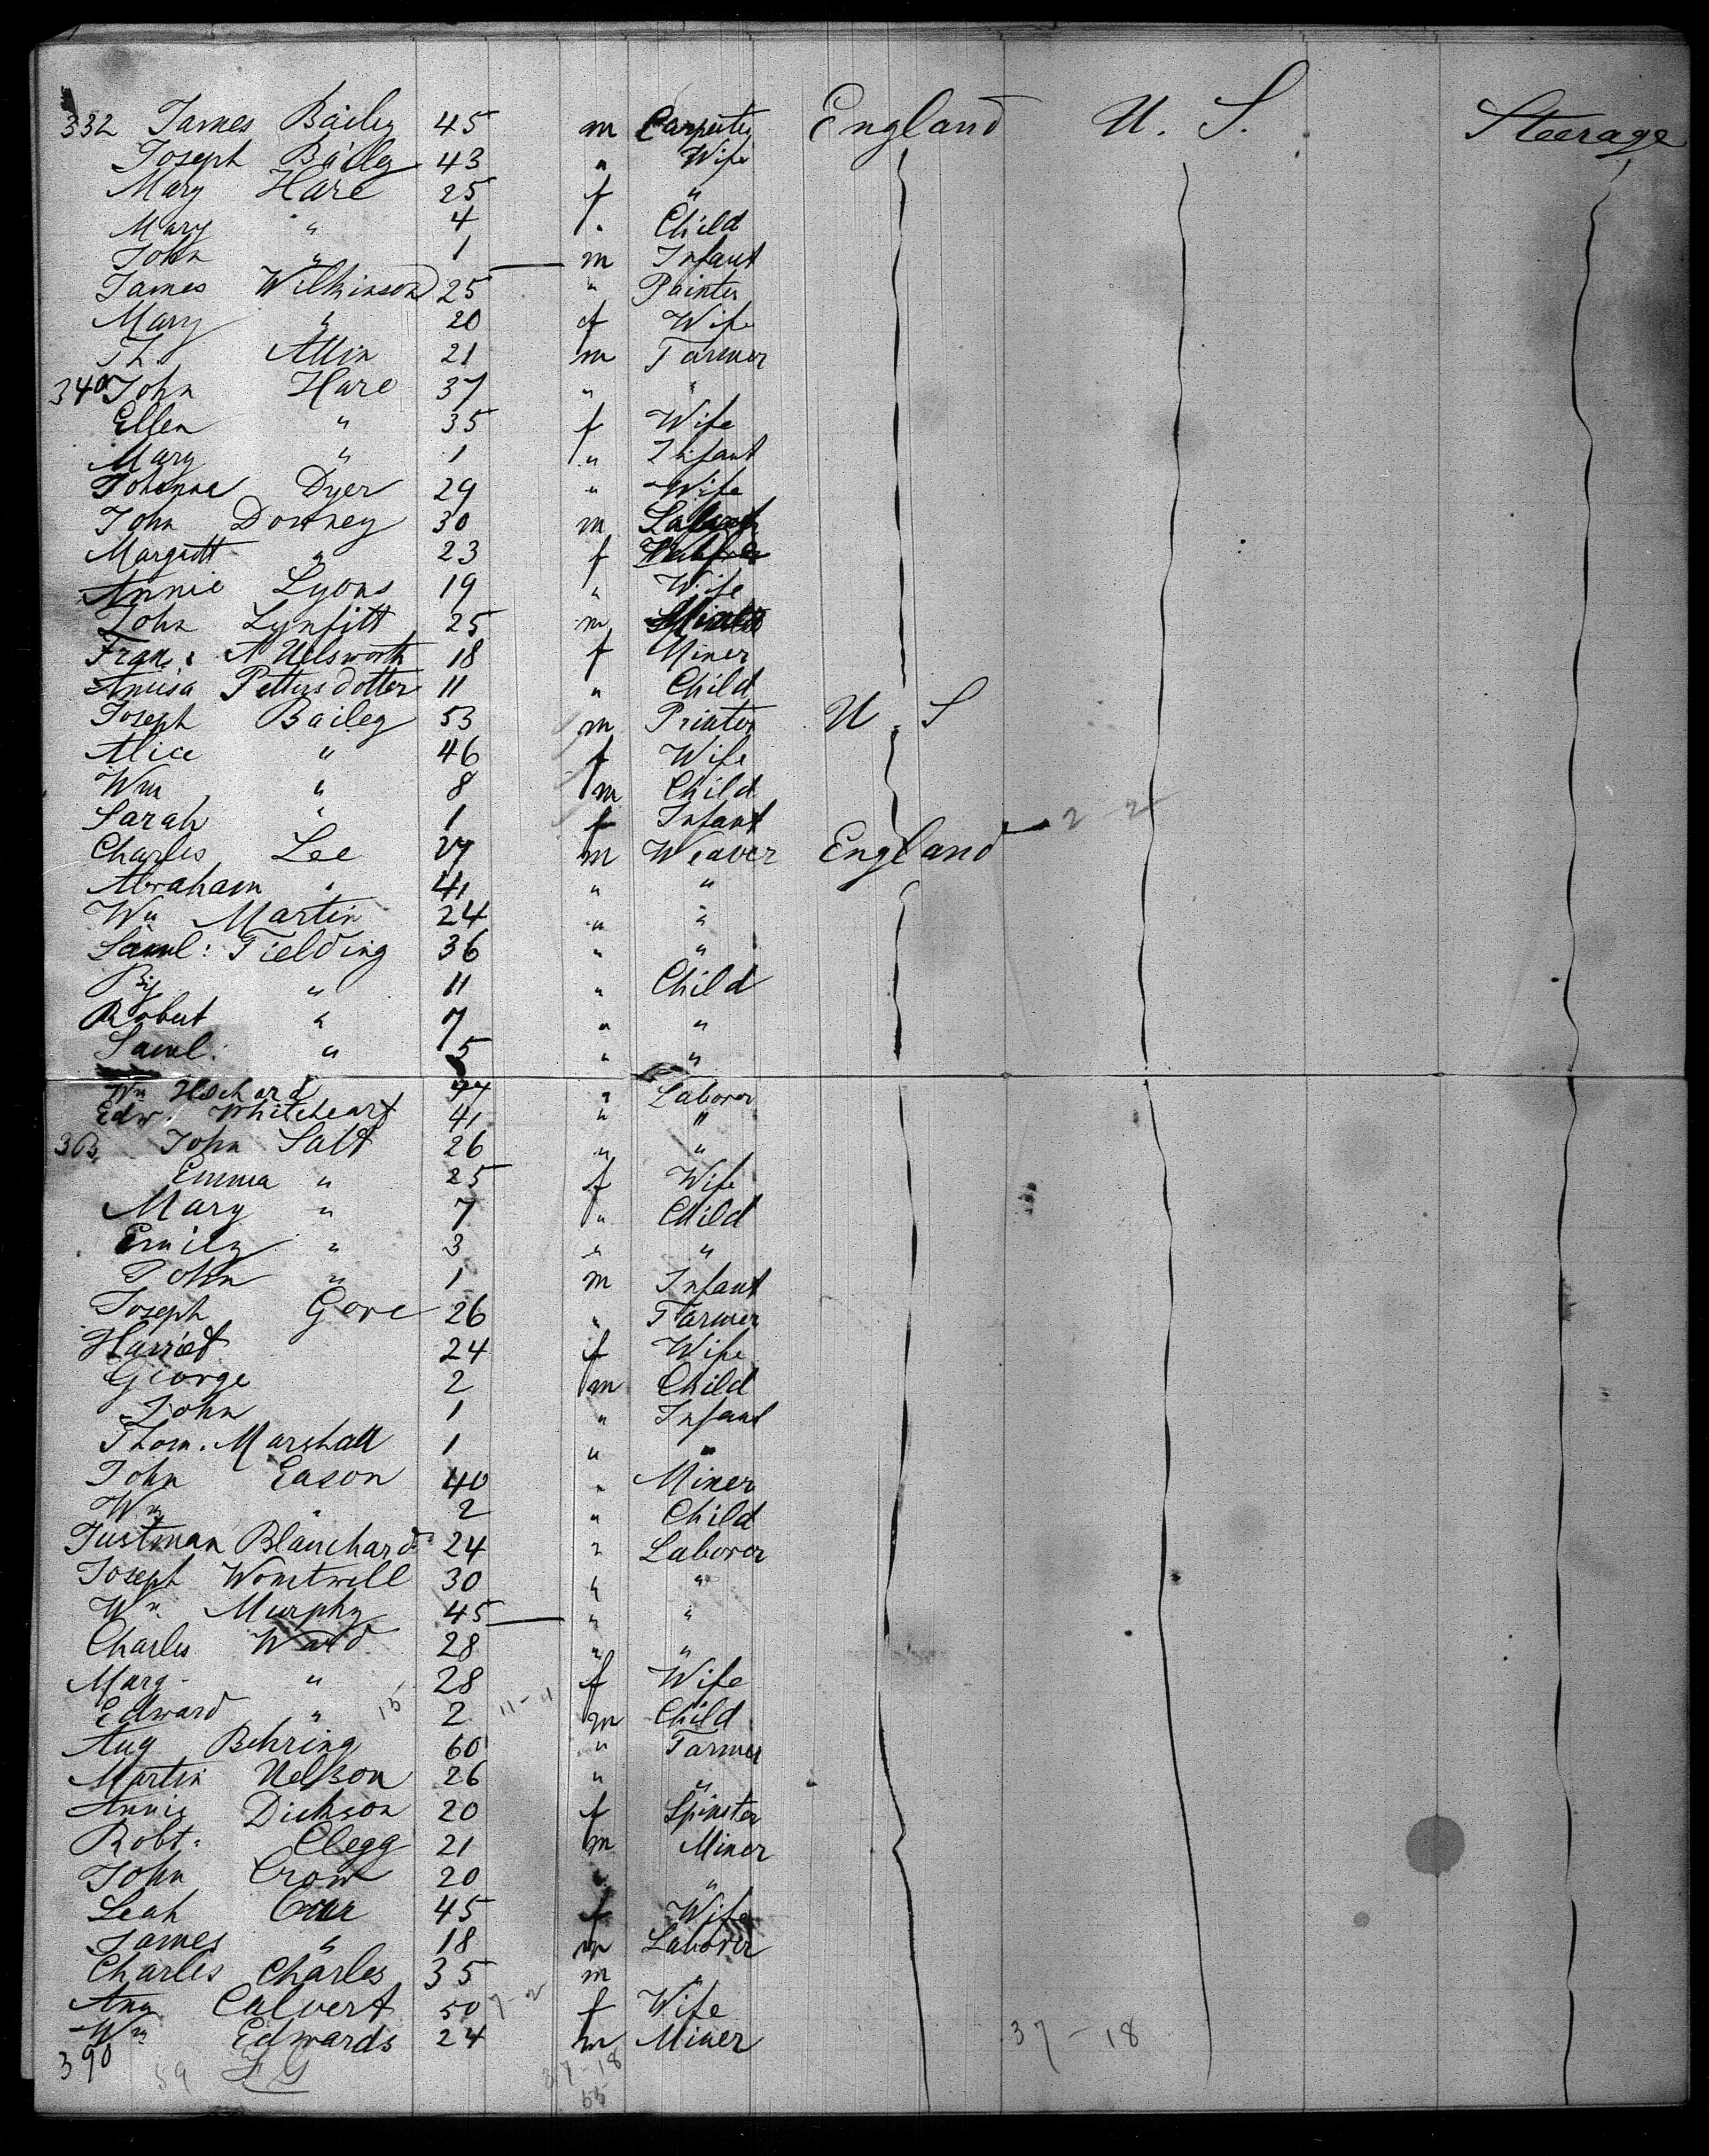 332 James Bailey 45 m Carpenter England U. S. Steerage
Joseph Bailey 43 " Wife
Mary Hare 25 f "
Mary " 4 " Child
John " 1 m Infant
James Wilkinson 25 " Painter
Mary " 20 f Wife
Th. Allin 21 m Farmer
340 John Hare 37 " "
Ellen " 35 f Wife
Mary " 1 " Infant
Johanna Dyer 29 " Wife
John Downey 30 m
Margrett " 23 f
Annie Lyons 19 " Wife
John Lynfitt 25 m
18 f Miner
Pettersdotter 11 " Child
Joseph Bailey 53 m Printer U. S
Alice " 46 f Wife
Wm " 8 m Child
Sarah " 1 f Infant 2-2
Charles Lee 27 m Weaver England
Abraham " 41 " "
Wm Martin 24 " "
Saml: Fielding 36 " "
" 11 " Child
Robert " 7 " "
Saml: " 5 " "
Wm " Laborer
Edw. Whiteheart 41 " "
363 John Salt 26 " "
Emma " 25 f Wife
Mary " 7 " Child
Emily " 3 " "
John " 1 m Infant
Joseph Gore 26 " Farmer
Harriet 24 f Wife
George 2 m Child
John 1 " Infant
Thom. Marshall 1 " "
John Eason 40 " Miner
Wm " 2 " Child
Justman Blanchard 24 " Laborer
Joseph Womtwell 30 " "
Wm. Murphy 45 " "
Charles Ward 28 " "
Marg " 28 f Wife
Edward " 15 2 11-11 m Child
Aug Behring 60 " Farmer
Martin Nelson 26 " "
Annie Dickson 20 f Spinster
Robt. Clegg 21 m Miner
John Crow 20 " "
Leah 45 f Wife
James " 18 m Laborer
Charles Charles 35 m "
Ann Calvert 50 f Wife
Wm Edwards 24 m Miner 37-18
390 59 37-18
55